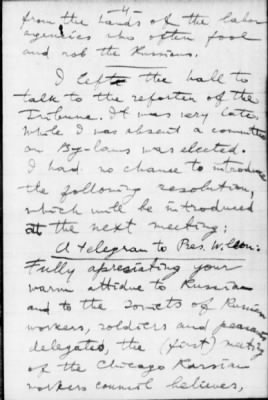 -4-
from the hands of the labor
agencies who often fool
and rob the Russians.
I left the hall to
talk to the reporter of the
Tribune. It was very late.
While I was absent a committee
on By-laws was elected.
I had no chance to introduce
the following resolution,
which will be introduced
at the next meeting:
A telegram to Pres. Wilson:
Fully apresiating your
warm attidue to Russian
and to the Soviets of Russian
workers, soldiers and peasants
delegated, the (first) meeting
of the Chicago Russian
workers council believes,